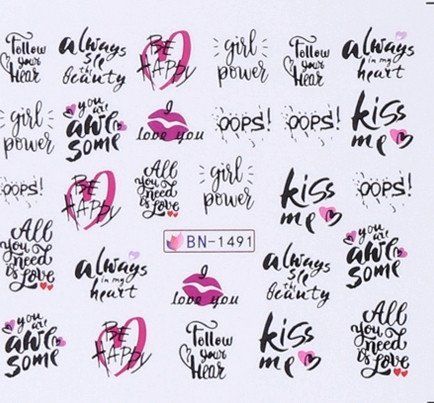 Follow
your
Hear
always
see the
beauty
BE
HAPPY
girl
power
Follow
your
Hear
always
in my
heart
girl
power
you are
awe
some
I
love you
OOPS!
OOPS!
kiss
me
OOPS!
BE
HAPPY
All
You need
is
Love
girl
power
kiss
me
OOPS!
All
You need
is
Love
always
in my
heart
BN-1491
I
love you
always
see the
beauty
you are
awe
some
you are
awe
some
BE
HAPPY
Follow
your
Hear
kiss
me
All
You need
is
Love